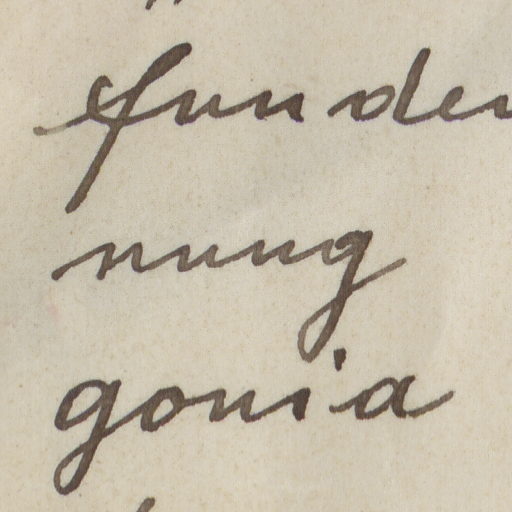 funder
nung
gonia